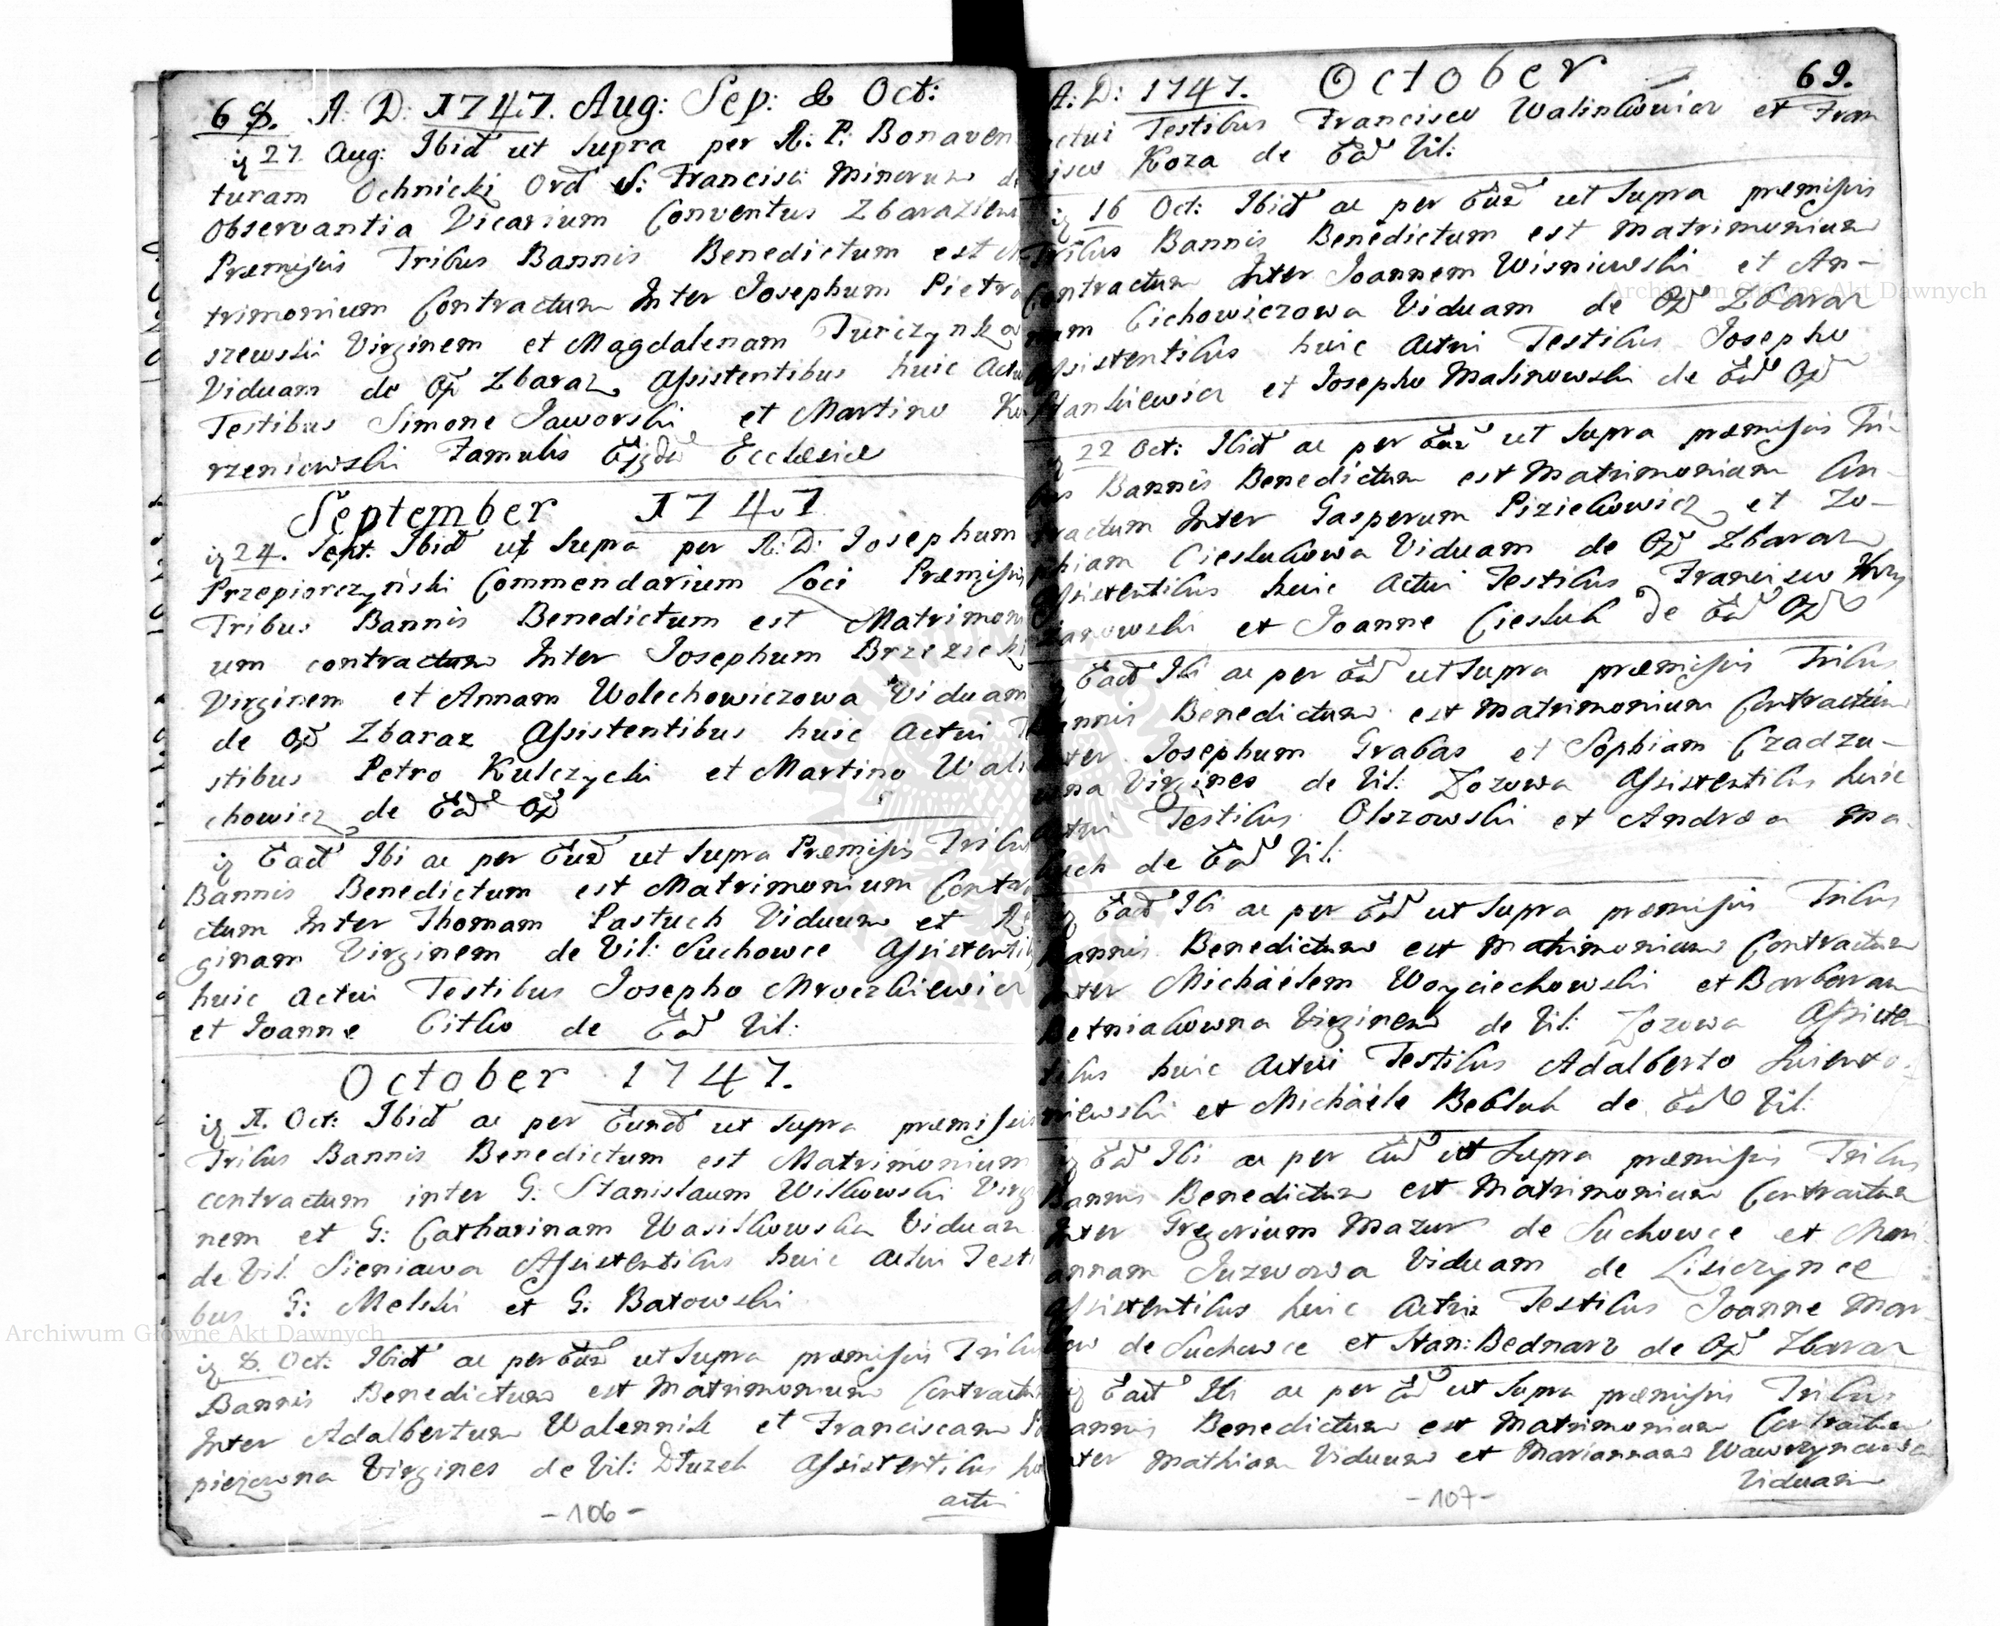 68. A: D: 1747. Aug: Sep: & Oct:
27 Aug: Ibid ut supra per R: P: Bonaven
turam Ochnicki Ord S: Francisci Minorum de
Observantia Vicarium Conventus Zbaraziens
Præmissis Tribus Bannis Benedictum est
trimonium Contractum Inter Josephum Pietra
szewski Virginem et Magdalenam Turczynka
Viduam de Opp Zbaraz Assistentibus huic Actu
Testibus Simone Jaworski et Martino Ko
rzeniowski Famulis Ejsdē Ecclesiæ
September 1747
24. Sept: Ibid ut Supra per A: D: Josephum
Przepiorczyński Commendarium Loci Præmissis
Tribus Bannis Benedictum est Matrimoni
um contractum Inter Josephum Brzezicki
Virginem et Annam Wolechowiczowa Viduam
de Opp Zbaraz Assistentibus huic Actui Te
stibus Petro Kulczycki et Martino Wale
chowicz de Ead Opp
Ead Ibi ac per Eund ut supra Præmissis Tribu
Bannis Benedictum est Matrimonium Contra
ctum Inter Thomam Pastuch Viduum et Re
ginam Virginem de Vil: Suchowce Assistentib
huic Actui Testibus Josepho Mroczkiewicz
et Joanne Citko de Ead Vil:
October 1747.
1. Oct: Ibid ac per Eund ut supra præmissis
Tribus Bannis Benedictum est Matrimonium
contractum inter G: Stanislaum Witkowski Virgi
nem et G: Catharinam Wasilkowska Viduam
de Vil: Sieniawa Assistentibus huic Actui Testi
bus G: Melski et G: Batowski
8. Oct: Ibid ac per Eund ut Supra præmissis Tribu
Bannis Benedictum est Matrimonium Contractu
Inter Adalbertum Walennik et Franciscam
piejowna Virgines de Vil: Dłuzek Assistentibus hu
actui
-106-
A: D: 1747. October 69.
ctui Testibus Francisco Walinkowicz et Fran
isco Koza de Ead Vil:
16 Oct: Ibid ac per Eund ut Supra præmissis
Tribus Bannis Benedictum est Matrimonium
Contractum Inter Joannem Wisniewski et An-
nam Cichowiczowa Viduam de Opp Zbaraz
Assistentibus huic Actui Testibus Josepho
Stankiewicz et Josepho Malinowski de Ead Opp
22 Oct: Ibid ac per Eund ut Supra præmissis Tri-
bus Bannis Benedictum est Matrimonium Con-
tractum Inter Gasperum Piziekowicz et Zo-
phiam Cieslukowa Viduam de Opp Zbaraz
Assistentibus huic Actui Testibus Francisco Krzy
zanowski et Joanne Ciesluk de Ead Opp
Ead Ibi ac per Eund ut Supra præmissis Tribus
Bannis Benedictum est Matrimonium Contractum
Inter Josephum Grabas et Sophiam Czadzu-
wna Virgines de Vil: Zozowa Assistentibus huic
Actui Testibus Olszowski et Andrea Ma-
de Ead Vil:
Ead Ibi ac per Eund ut Supra præmissis Tribus
Bannis Benedictum est Matrimonium Contractum
Inter Michäelem Woyciechowski et Barbaram
Betniakowna Virginem de Vil: Zozowa Assisten
tibus huic Actui Testibus Adalberto
niewski et Michäele Bebluk de Ead Vil:
Ead Ibi ac per Eund ut Supra præmissis Tribus
Bannis Benedictum est Matrimonium Contractum
Inter Gregorium Mazur de Suchowce et Mari
annam Juzwowa Viduam de Lisiczynce
Assistentibus huic Actui Testibus Joanne Mar
de Suchowce et Stan: Bednarz de Opp Zbaraz
Ead Ibi ac per Eund ut Supra præmissis Tribus
Bannis Benedictum est Matrimonium Contractum
Inter Mathiam Viduum et Mariannam Wawrzynowa
Viduam
-107-
Archiwum Główne Akt Dawnych
Archiwum Główne Akt Dawnych